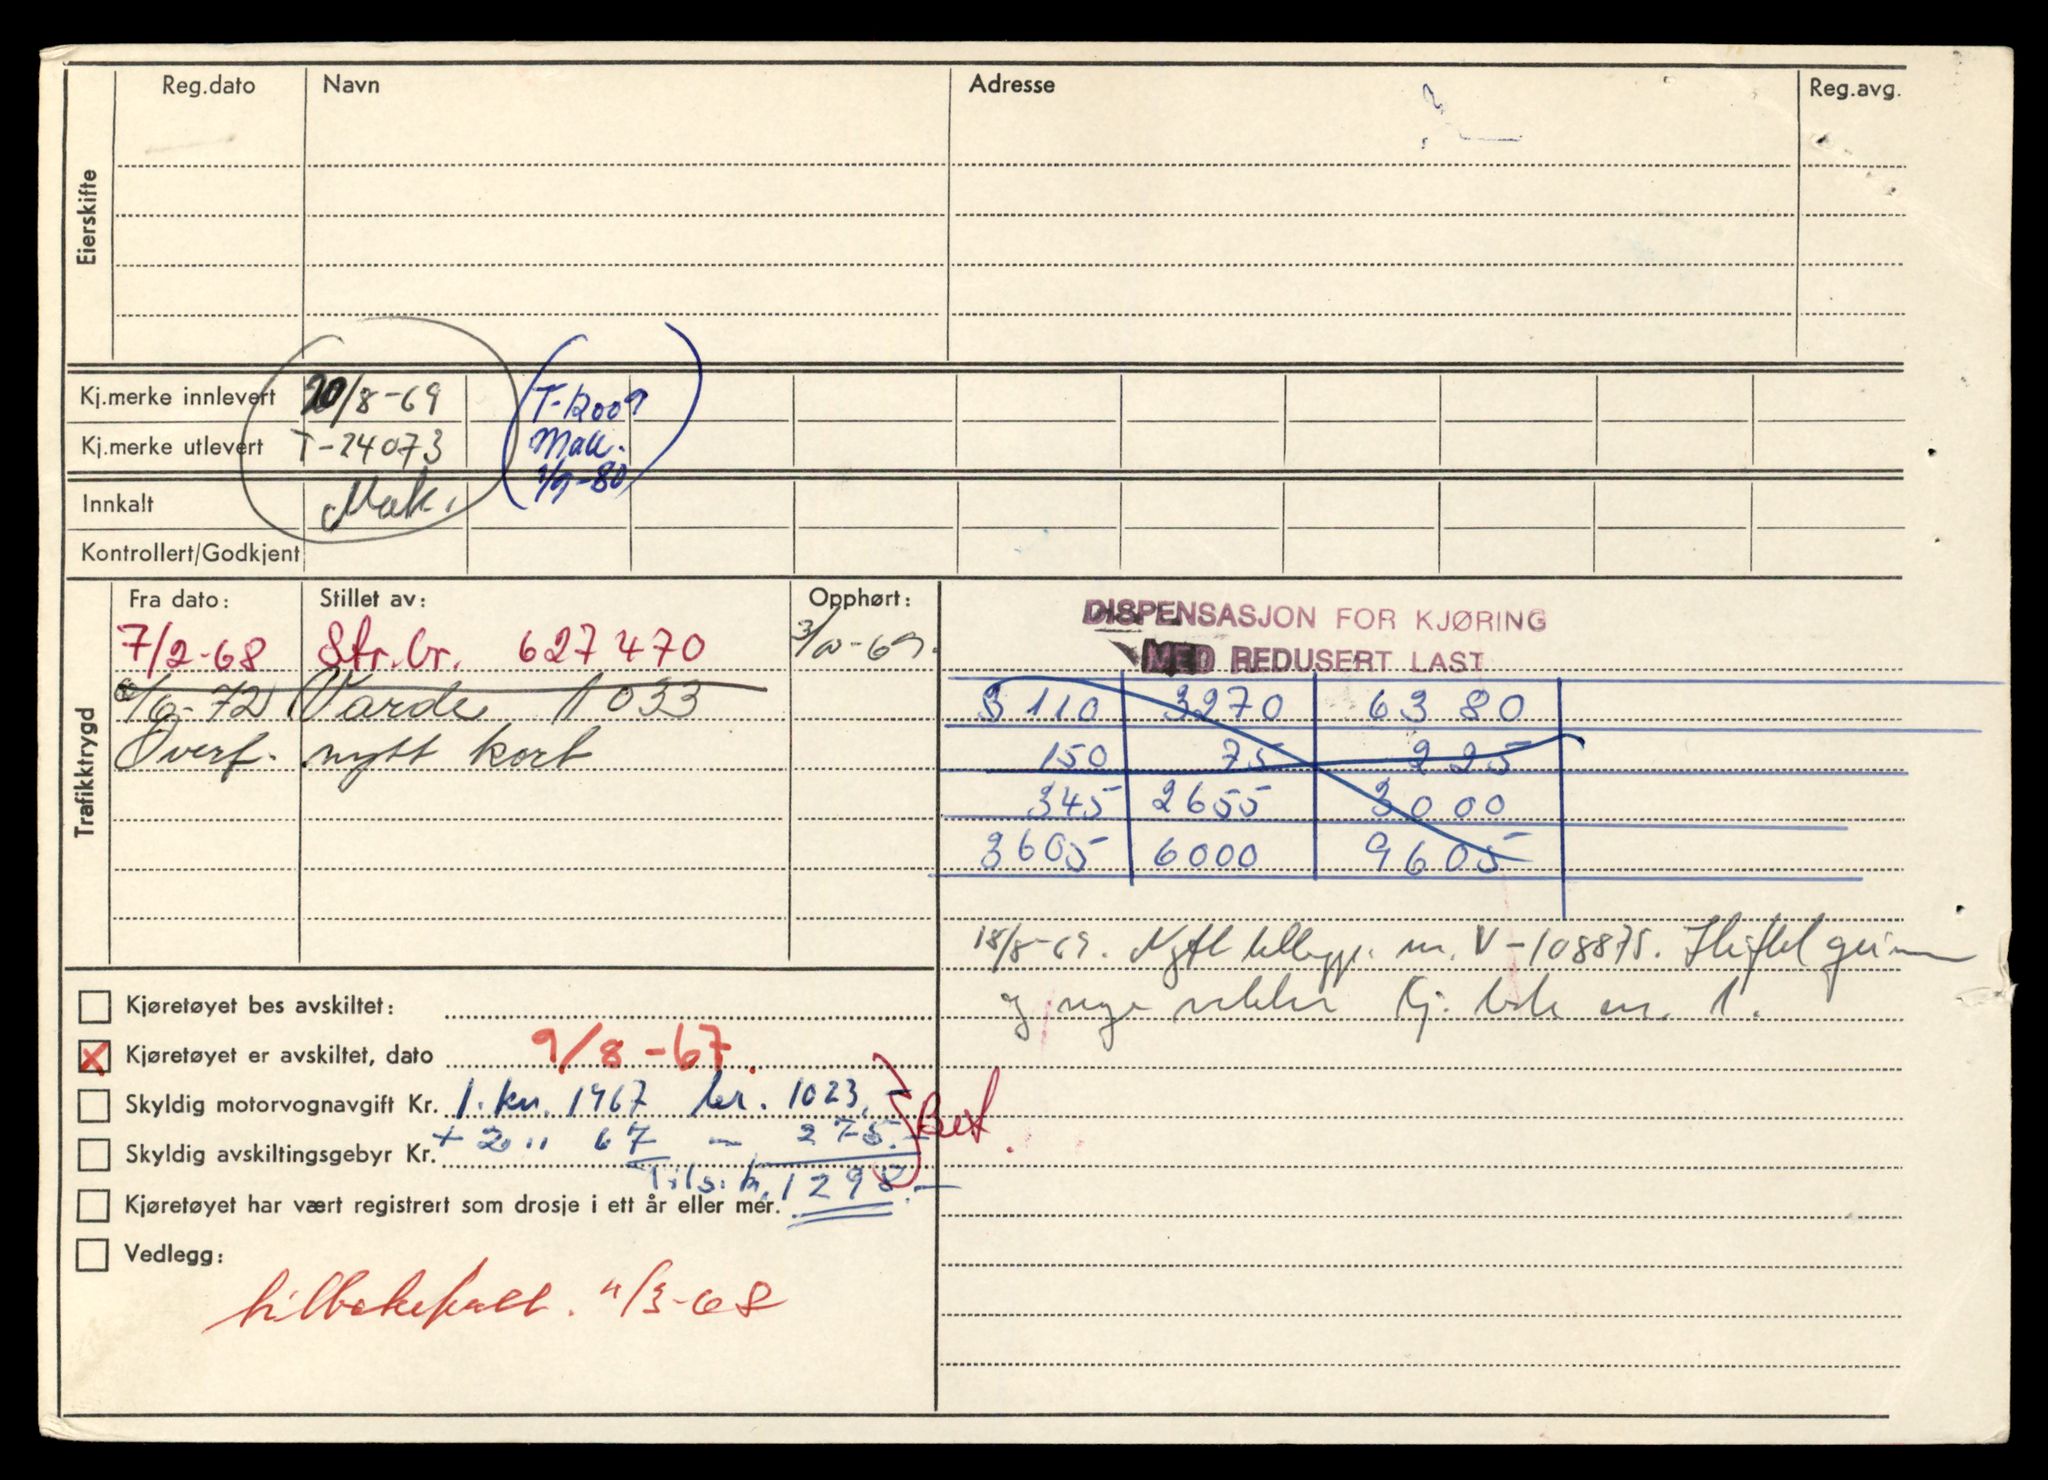 Reg.dato Navn Adresse Reg.avg.
Eierskifte
Kj.merke innlevert 20/8-69 T-12009
Kj.merke utlevert T-24073 Mak.
1/9-80
Innkalt Mak.
Kontrollert/Godkjent
Trafikktrygd
Fra dato: Stillet av: Opphørt:
7/2-68 Str.br. 627470 3/10-69.
/6-72 Varde 1033
Overf. nytt kort
DISPENSASJON FOR KJØRING
MED REDUSERT LAST
3110 3270 6380
150 75 225
345 2655 3000
3605 6000 9605
18/8-69. Nytt vr. V-108875. Skiftet
og nye Kj. nr. 1.
Kjøretøyet bes avskiltet:
Kjøretøyet er avskiltet, dato 9/8-67.
Skyldig motorvognavgift Kr. 1. kv. 1967 kr. 1023,-
+ 2 " 67 - 275.-
Bet.
Skyldig avskiltingsgebyr Kr.
Tils. kr. 1298.-
Kjøretøyet har vært registrert som drosje i ett år eller mer.
Vedlegg:
tilbakekalt. 11/3-68